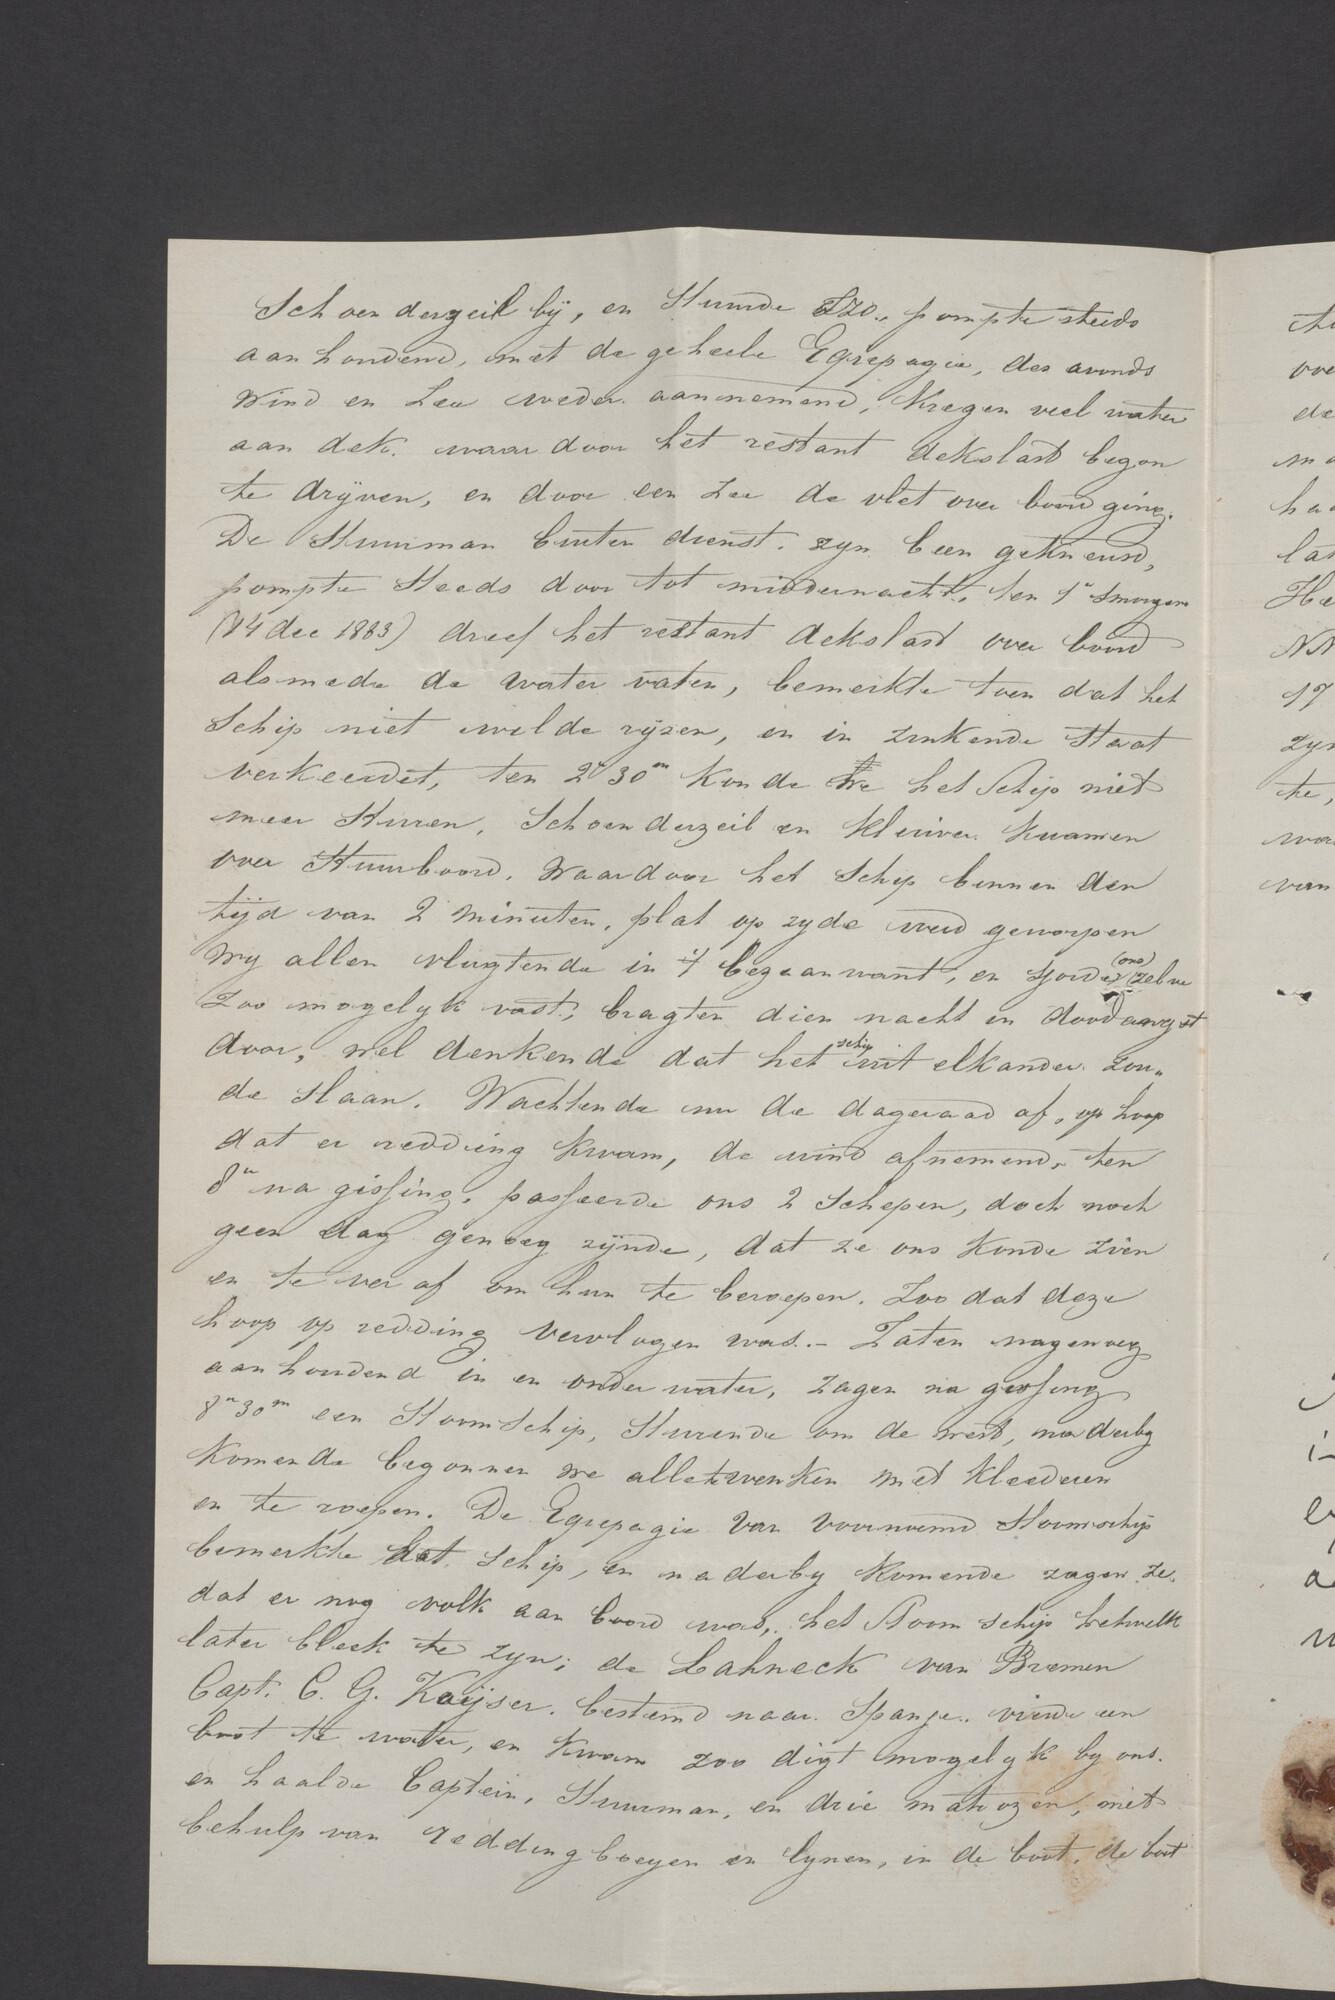 Schoenderzeil bij, en Stuurde ZZO., pompte steeds
aanhoudend, met de geheele Equepagie, des avonds
Wind en Zee weder aannemend, Kregen veel water
aan dek. waar door het restant dekslast begon
te drijven, en door een Zee de vlet over boord ging.
De Stuurman buiten dienst. zyn been gekneusd,
pompte Steeds door tot middernacht, ten 1 u smorgens
(14 dec 1883) dreef het restant dekslast over boord
alsmede de water vaten, bemerkte toen dat het
Schip niet wilde rijzen, en in zinkende Staat
verkeerdet, ten 2 u 30 m Konde we het Schip niet
meer Sturen, Schoenderzeil en Kluiver Kwamen
over Stuurboord. Waardoor het Schip binnen den
tijd van 2 minuten, plat op zyde werd geworpen
Wy allen vlugtende in 't bezaanwant, en sjorde (ons) zelve
Zoo mogelyk vast, bragten dien nacht in doodangst
door, wel denkende dat het schip uit elkander zou„
de Slaan. Wachtende nu de dageraad af, op hoop
dat er redding Kwam, de wind afnemend, ten
8 u na gissing, passeerde ons 2 Schepen, doch noch
geen dag genoeg zijnde, dat ze ons Konde zien
en te ver af om hun te beroepen. Zoo dat deze
hoop op redding vervlogen was.- Zaten nagenoeg
aanhoudend in en onder water, zagen na gissing
8 u 30 m een Stoomschip, Sturende om de west, naderby
Komende begonnen we alle te wenken met Kleederen
en te roepen. De Equepagie van voornoemd Stoomschip
bemerkte het Schip, en naderby Komende zagen ze,
dat er nog volk aan boord was, het Stoomschip hetwelk
later bleek te zyn; de Lahneck van Bremen
Capt. C. G. Kaijser. bestemd naar Spanje. vierde een
boot te water, en Kwam zoo digt mogelyk by ons.
en haalde Captein, Stuurman, en drie matrozen, met
behulp van reddingboeyen en lynen, in de boot. de boot